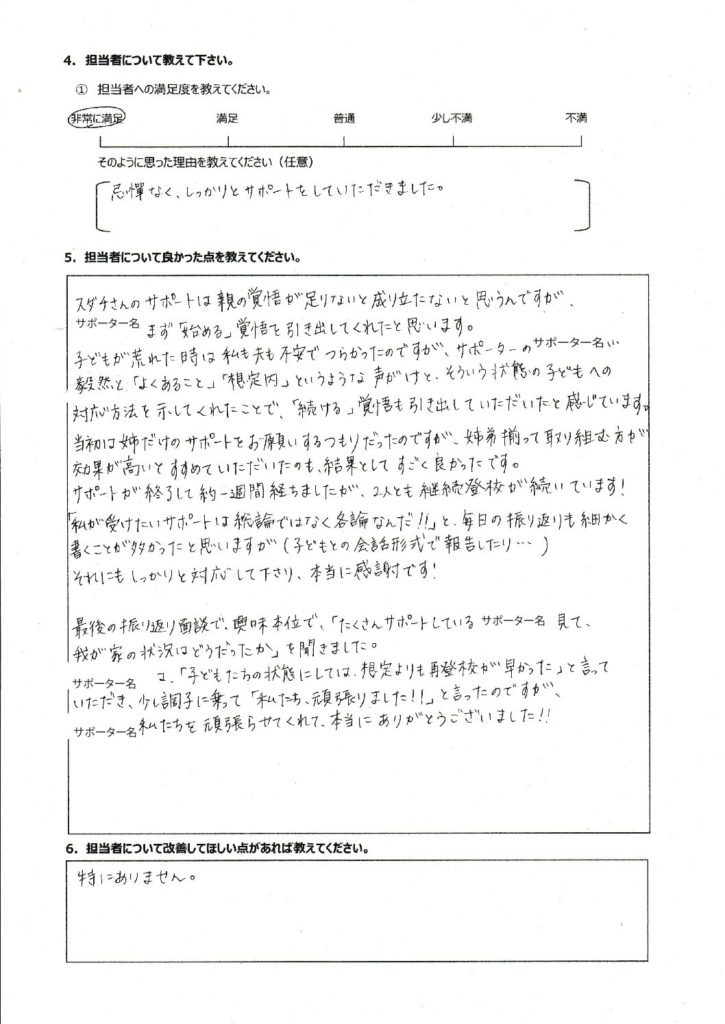 4. 担当者について教えて下さい。
① 担当者への満足度を教えてください。
非常に満足 満足 普通 少し不満 不満
そのように思った理由を教えてください（任意）
忌憚なく、しっかりとサポートをしていただきました。
5. 担当者について良かった点を教えてください。
スダチさんのサポートは親の覚悟が足りないと成り立たないと思うんですが、
サポーター名 まず「始める」覚悟を引き出してくれたと思います。
子どもが荒れた時は私も夫も不安でつらかったのですが、サポーターのサポーター名が
毅然と「よくあること」「想定内」というような声がけと、そういう状態の子どもへの
対応方法を示してくれたことで、「続ける」覚悟も引き出していただいたと感じています。
当初は姉だけのサポートをお願いするつもりだったのですが、姉弟揃って取り組む方が
効果が高いとすすめていただいたのも、結果としてすごく良かったです。
サポートが終了して約一週間経ちましたが、2人とも継続登校が続いています！
「私が受けたいサポートは総論ではなく各論なんだ!!」と、毎日の振り返りも細かく
書くことが多かったと思いますが（子どもとの会話形式で報告したり…）
それにもしっかりと対応して下さり、本当に感謝です！
最後の振り返り面談で、興味本位で、「たくさんサポートしている サポーター名 見て、
我が家の状況はどうだったか」を聞きました。
サポーター名 は、「子どもたちの状態にしては、想定よりも再登校が早かった」と言って
いただき、少し調子に乗って「私たち、頑張りました!!」と言ったのですが、
サポーター名 私たちを頑張らせてくれて、本当にありがとうございました!!
6. 担当者について改善してほしい点があれば教えてください。
特にありません。